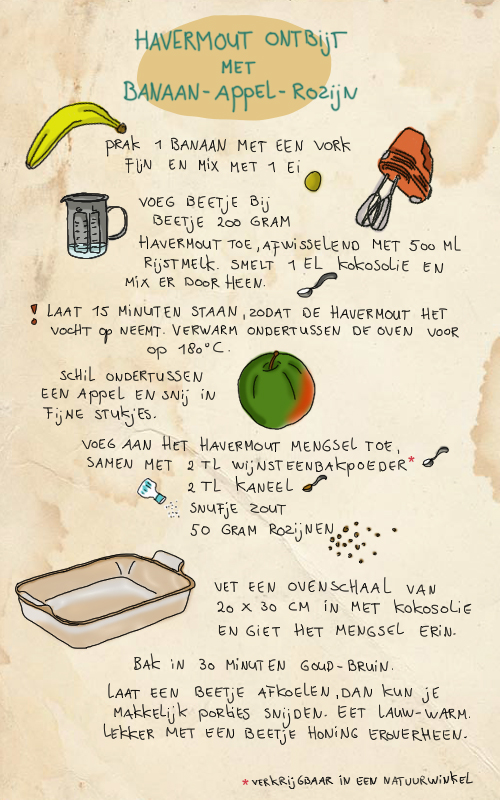 HAVERMOUT ONTBIJT
MET
BANAAN-APPEL-ROZIJN
PRAK 1 BANAAN MET EEN VORK
FIJN EN MIX MET 1 EI
VOEG BEETJE BIJ
BEETJE 200 GRAM
HAVERMOUT TOE, AFWISSELEND MET 500 ML
RIJSTMELK. SMELT 1 EL KOKOSOLIE EN
MIX ER DOOR HEEN.
! LAAT 15 MINUTEN STAAN, ZODAT DE HAVERMOUT HET
VOCHT OP NEEMT. VERWARM ONDERTUSSEN DE OVEN VOOR
OP 180°C.
SCHIL ONDERTUSSEN
EEN APPEL EN SNIJ IN
FIJNE STUKJES.
VOEG AAN HET HAVERMOUT MENGSEL TOE,
SAMEN MET 2 TL WIJNSTEENBAKPOEDER*
2 TL KANEEL
SNUFJE ZOUT
50 GRAM ROZIJNEN
VET EEN OVENSCHAAL VAN
20 X 30 CM IN MET KOKOSOLIE
EN GIET HET MENGSEL ERIN.
BAK IN 30 MINUTEN GOUD-BRUIN.
LAAT EEN BEETJE AFKOELEN, DAN KUN JE
MAKKELIJK PORTIES SNIJDEN. EET LAUW-WARM.
LEKKER MET EEN BEETJE HONING EROVERHEEN.
*VERKRIJGBAAR IN EEN NATUURWINKEL